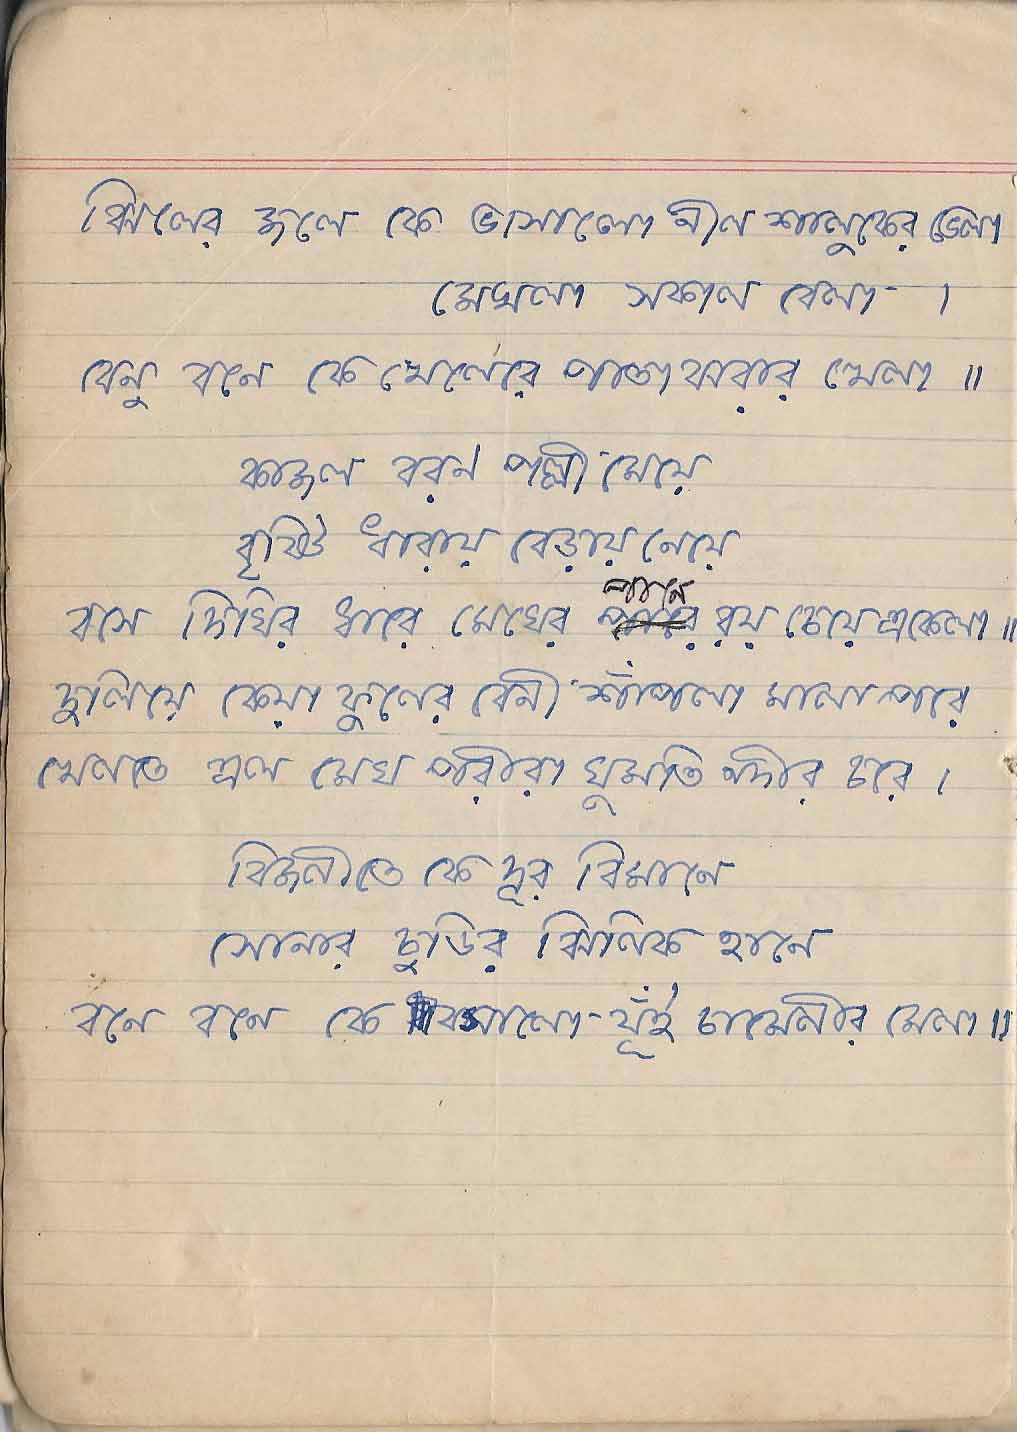 ঝিলের জলে কে ভাসালো নীল শালুকের ভেলা
মেঘলা সকাল বেলা ।
বেনু বনে কে খেলেরে পাতা ঝরার খেলা ॥
কাজল বরন পল্লী মেয়ে
বৃষ্টি ধারায় বেড়ায় নেয়ে
বসে দিঘির ধারে মেঘের পানে রয় চেয়ে একেলা ॥
দুলিয়ে কেয়া ফুলের বেনী শাঁপলা মালা পরে
খেলতে এল মেঘ পরীরা ঘুমতি নদীর চরে ।
বিজলীতে কে দূর বিমানে
সোনার চুড়ির ঝিলিক হানে
বনে বনে কে বসালো যূঁই চামেলীর মেলা ॥